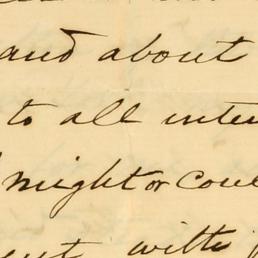 and about
to all inten
might or coul
with